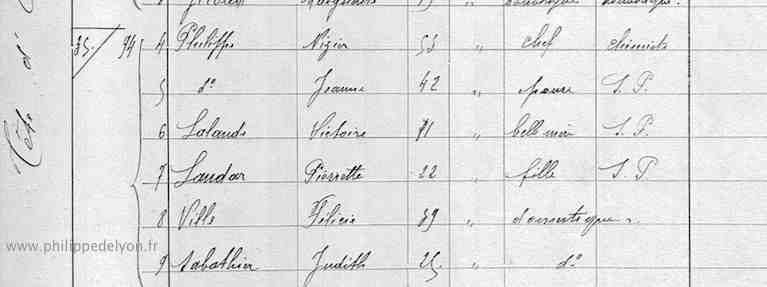 Tête d'
35. 94 4 Philippe Nizier 53 " chef chimiste
5 d° Jeanne 42 " S. P.
6 Lalande Victoire 71 " belle mère S. P.
7 Landar Pierrette 22 " fille S. P
8 Ville Félicie 39 " domestique
9 Sabathier Judith 25 " d°
www.philippedelyon.fr